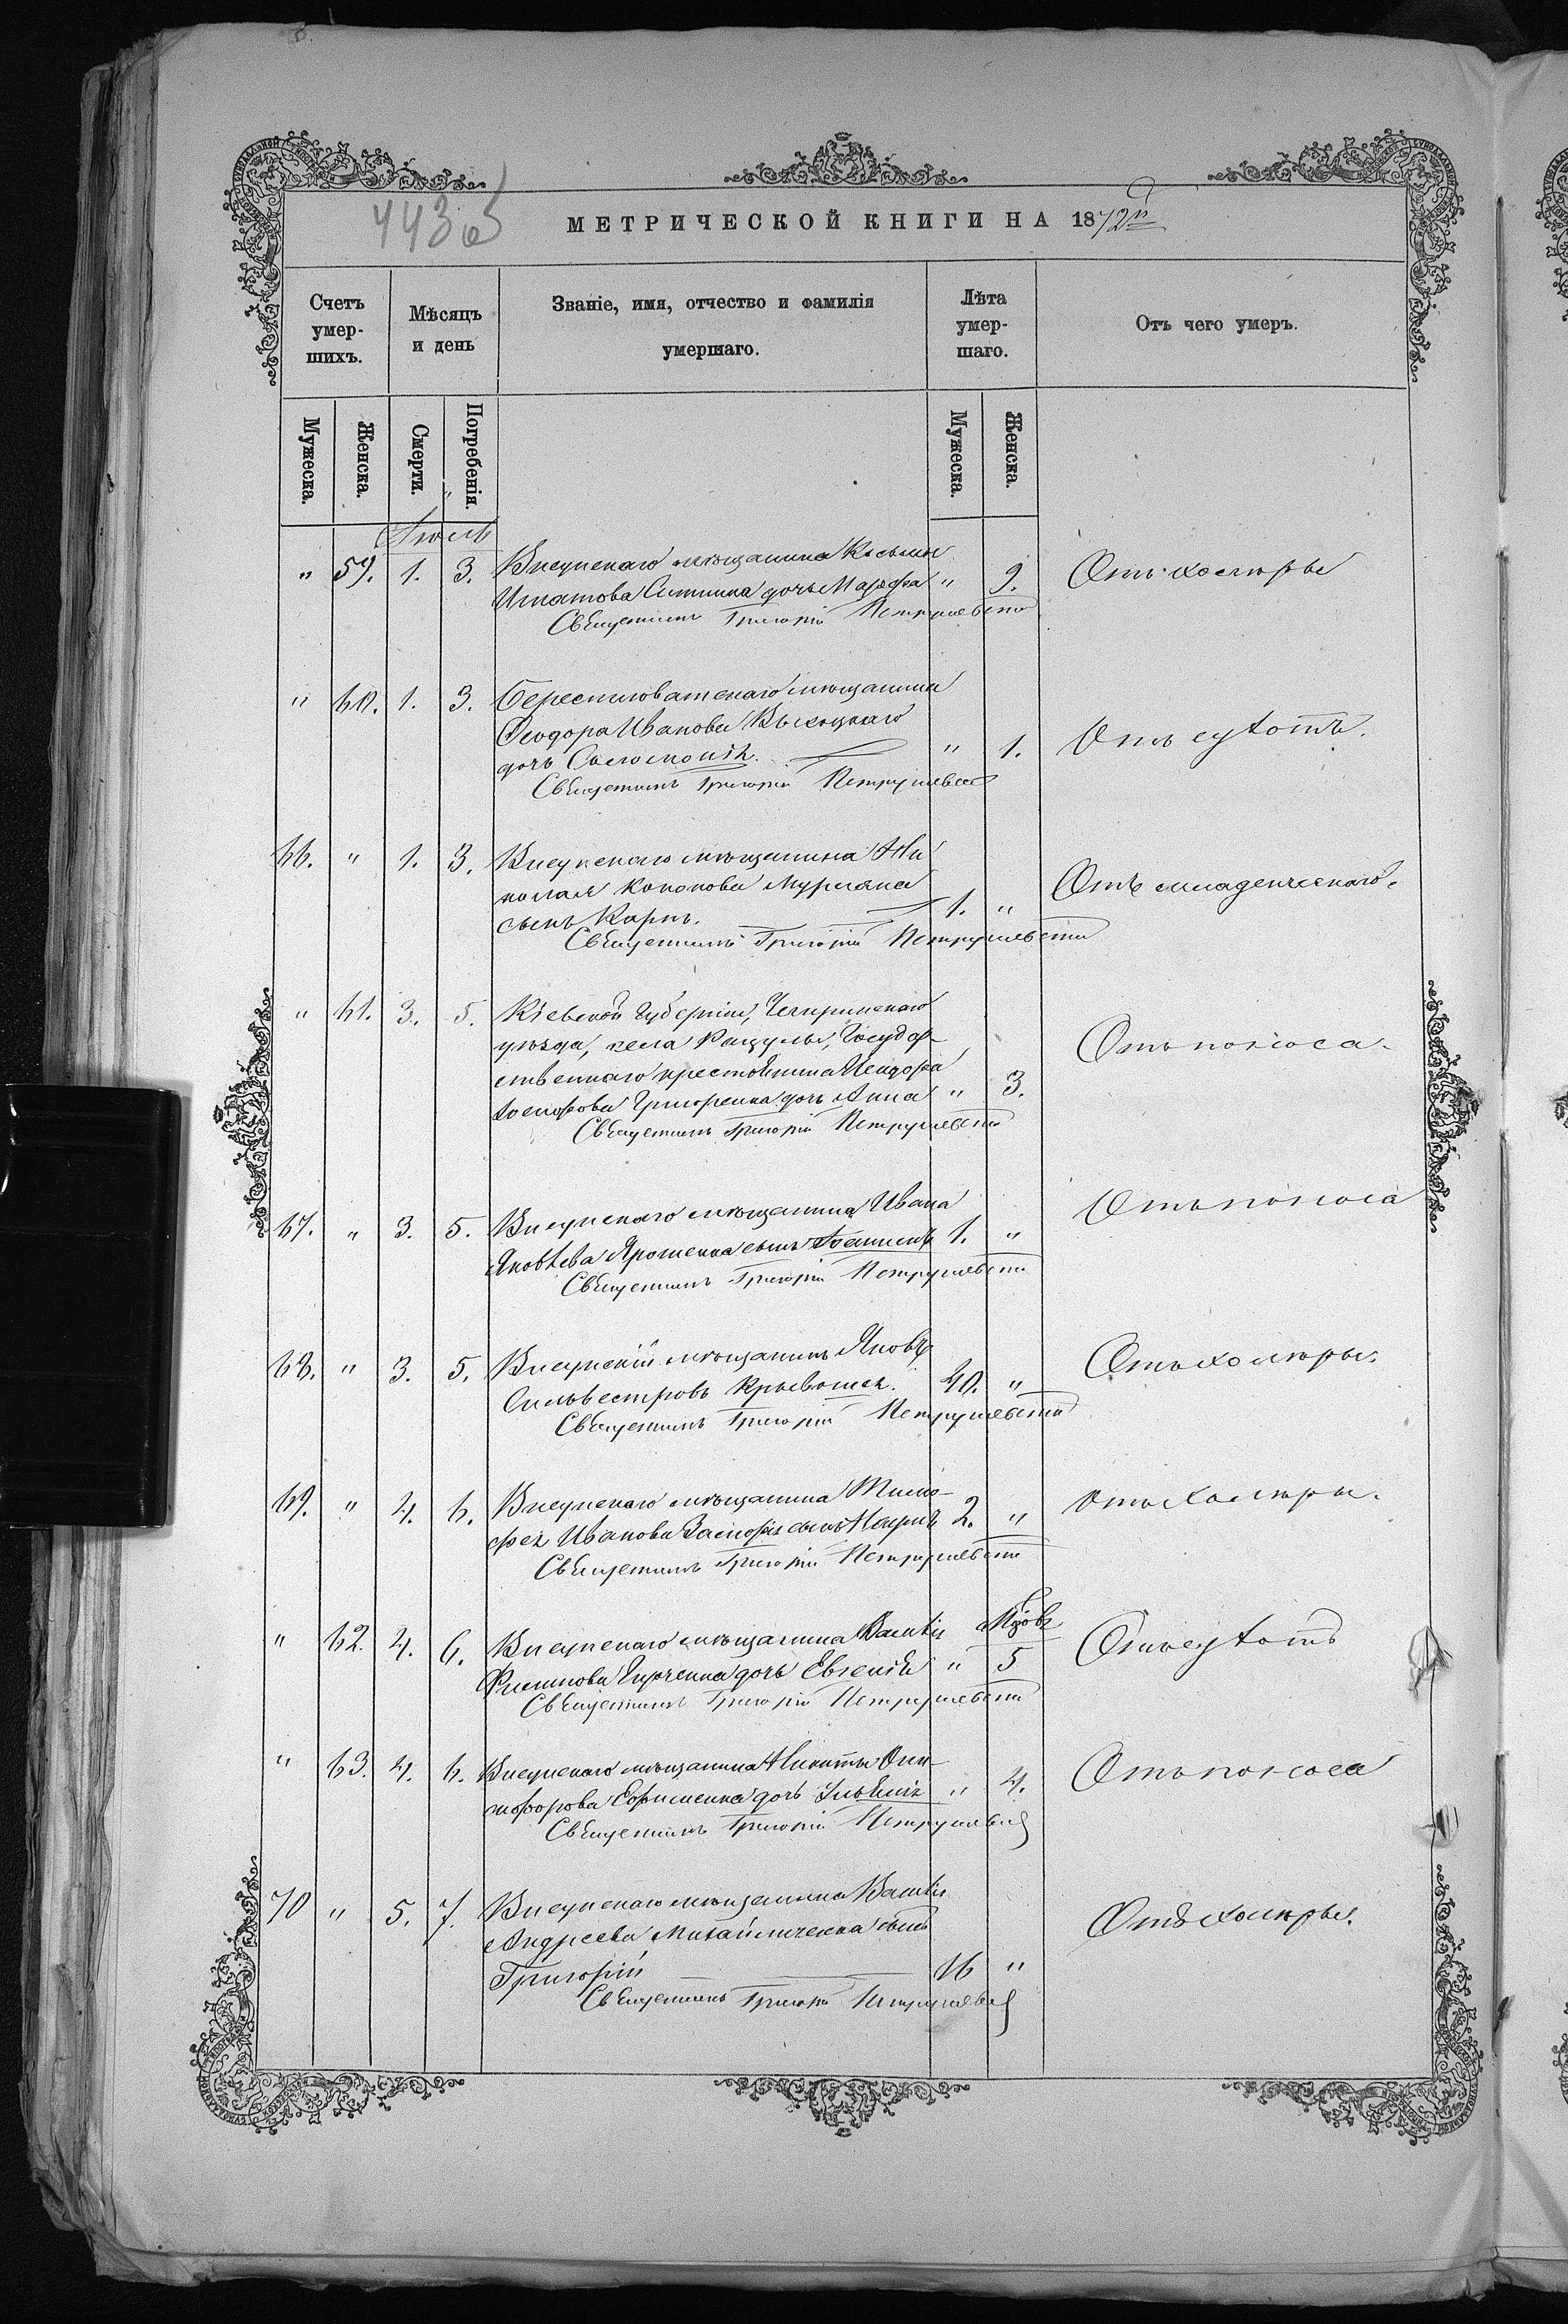 443 об
МЕТРИЧЕСКОЙ КНИГИ НА 1872й
Счетъ умершихъ.
Мѣсяцъ и день
Званіе, имя, отчество и фамилія умершаго.
Лѣта умершаго.
Отъ чего умеръ.
Мужеска.
Женска.
Смерти.
Погребенія.
Мужеска.
Женска.
Іюль
" 59. 1. 3. Висунскаго мѣщанина Косьмы
Игнатова дочь Марѳа " 9. Отъ холеры
Священникъ Григорій Петрушевскій
" 60. 1. 3. Березниговатскаго мѣщанина
Ѳеодора Иванова Высоцкаго
дочь Саломонія. " 1. Отъ сухотъ.
Священникъ Григорій Петрушевскій
66. " 1. 3. Висунскаго мѣщанина Ни
колая Кононова Мурмана
сынъ Карпъ. 1. " Отъ младенческаго.
Священникъ Григорій Петрушевскій
" 61. 3. 5. Кіевской Губерніи, Чигиринскаго
уѣзда, села Рацулы, Государ-
ственнаго крестьянина Исидора
Іосифова Григоренка дочь Анна " 3. Отъ поноса.
Священникъ Григорій Петрушевскій
67. " 3. 5. Висунскаго мѣщанина Ивана
Яковлева Ярошенка сынъ Іоанникій 1. " Отъ поноса
Священникъ Григорій Петрушевскій
68. " 3. 5. Висунскій мѣщанинъ Яковъ
Сильвестровъ Кривошея. 40. " Отъ холеры.
Священникъ Григорій Петрушевскій
69. " 4. 6. Висунскаго мѣщанина Тимо-
фея Иванова сынъ 2. " Отъ холеры.
Священникъ Григорій Петрушевскій
" 62. 4. 6. Висунскаго мѣщанина Василія Мѣсяц
Филипова дочь Евгенія " 5 Отъ сухотъ
Священникъ Григорій Петрушевскій
" 63. 4. 6. Висунскаго мѣщанина Никиты Они-
сифорова Ефименка дочь Ульянія " 4. Отъ поноса
Священникъ Григорій Петрушевскій
70 " 5. 7. Висунскаго мѣщанина Василія
Андреева Михайличенка сынъ
Григорій 16 " Отъ холеры.
Священникъ Григорій Петрушевскій